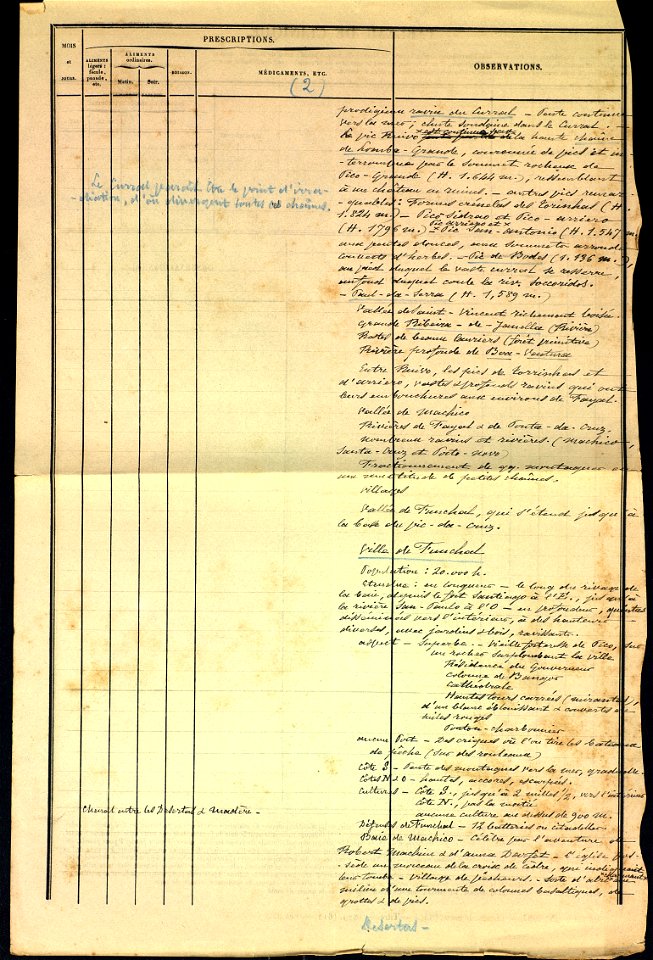 MOIS
et
JOURS.
PRESCRIPTIONS.
ALIMENTS
légers :
fécule,
panade,
etc.
ALIMENTS
ordinaires.
Matin.
Soir.
BOISSON.
MÉDICAMENTS, ETC.
OBSERVATIONS.
(2)
prodigieux ravin du Curral - Pente continue
vers la mer; chute soudaine dans le Curral. -
Le pic Ruivo est continué par de la haute chaîne
de Lomba-Grande, couronnée de pics et in-
terrompue par le sommet rocheux de
Pico-Grande (H. 1.644 m), ressemblant
à un château en ruines. - autres pics remar-
quables: Formes crénelées del Torinhas (H.
1.824 m.) - Pico Sidrao et Pico-arriero
(H. 1796 m.) - Pic San-antonio (H. 1.547 m.
Pic arriero et
aux pentes douces, aux sommets arrondis
couverts d'herbes. - Pic de Bodes (1.136 m.),
au pied duquel le vaste curral se resserre,
au fond duquel coule la riv. Soccoridos.
- Paul-da-Serra (H. 1,589 m.)
Le Curral paraît être le point d'irra-
-diation, d'où divergent toutes ces chaînes.
Vallée de Saint-Vincent richement boisée.
Grande Ribeira-de-Janella (Rivière)
Restes de beaux lauriers (forêt primitive)
Rivière profonde de Boa-Ventura
Entre Ruivo, les pics de Torrinhas et
d'arriero, vastes & profonds ravins qui ont
leurs embouchures aux environs de Fayal.
Vallée de Machico
Rivières de Fayal & de Ponta-da-Cruz.
nombreux ravins et rivières. (Machico,
Santa-Cruz et Porto-Novo)
Fractionnement de qq. montagnes en
une multitude de petites chaînes.
villages
Vallée de Funchal, qui s'étend jusqu'à
la base du pic-da-Cruz.
Ville de Funchal
Population: 20.000 h.
Etendue: en longueur - le long du rivage de
la baie, depuis le fort Santiago à l'E., jusqu'à
la rivière San-Paulo à l'O - en profondeur,
disséminées vers l'intérieur, à des hauteurs
diverses, avec jardins & bois, ravissante.
aspect - Superbe. - Vieille forteresse de Pico, sur
un rocher surplombant la ville
Résidence du Gouverneur
Colonne de Banger
Cathédrale
Hautes tours carrées (mirantes),
d'un blanc éblouissant & couvertes de
tuiles rouges
Ponton-charbonnier
aucun Port - Des criques où l'on tire les bateaux
de pêche (sur des rouleaux)
Côte S - Pente des montagnes vers la mer, graduelle.
Côtes N & O - hautes, accores, escarpées.
Cultures - Côte S., jusqu'à 2 milles 1/2, vers l'intérieur
Côte N., pas la moitié
aucune culture au dessus de 900 m.
Chenal entre les Desertas & Madère -
Défenses de Funchal - 12 batteries ou citadelles
Baie de Machico - Célèbre par l'aventure de
Robert Machim & d'Anna Dorset - L'église pos-
sède un morceau de la croix de cèdre, qui indiquait
leur tombe - Village de pêcheurs. - Sorte d'
milieu d'une tourmente de colonnes basaltiques, de
grottes & de pics.
Desertas -